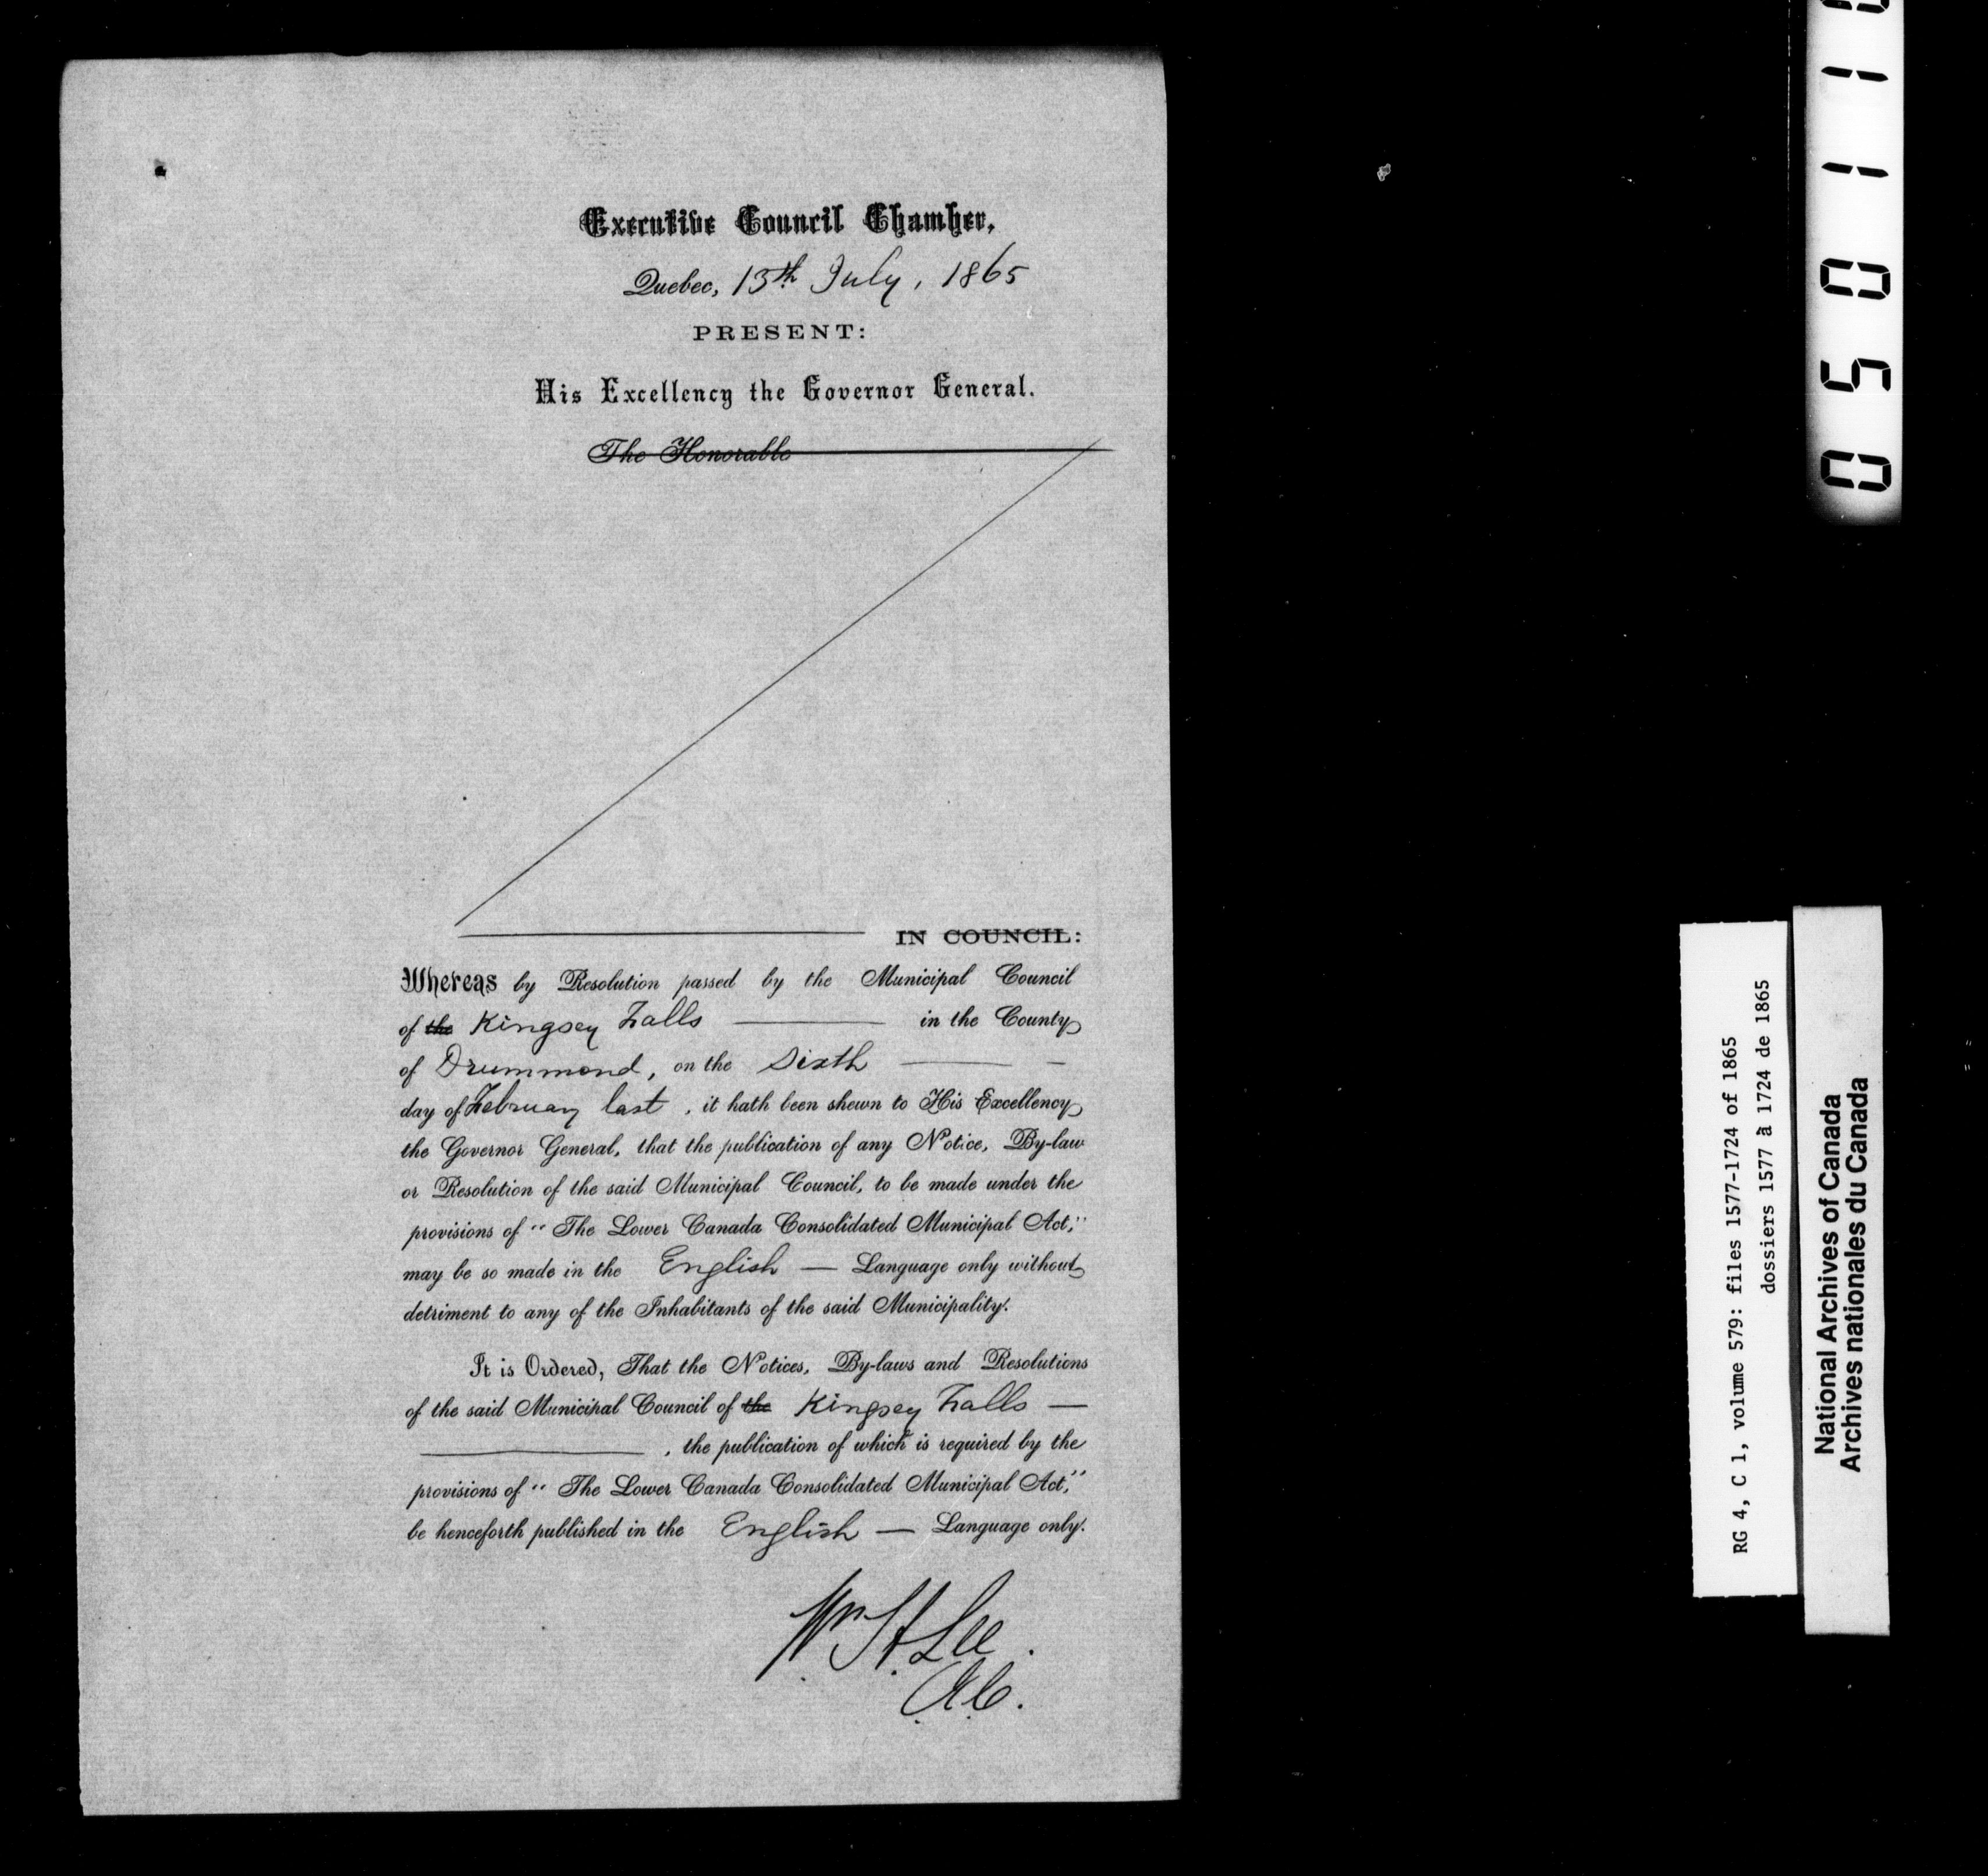 Executive Council Chamber,
Quebec, 13th July, 1865
PRESENT:
His Excellency the Governor General.
The Honorable
IN COUNCIL:
Whereas by Resolution passed by the Municipal Council
of the Kingsey Falls in the County
of Drummond, on the Sixth
day of February last, it hath been shewn to His Excellency
the Governor General, that the publication of any Notice, By-law
or Resolution of the said Municipal Council, to be made under the
provisions of "The Lower Canada Consolidated Municipal Act,"
may be so made in the English — Language only without
detriment to any of the Inhabitants of the said Municipality.
It is Ordered, That the Notices, By-laws and Resolutions
of the said Municipal Council of the Kingsey Falls —
, the publication of which is required by the
provisions of "The Lower Canada Consolidated Municipal Act,"
be henceforth published in the English — Language only.
Wm H. Lee.
RG 4, C 1, volume 579: files 1577-1724 of 1865
dossiers 1577 à 1724 de 1865
National Archives of Canada
Archives nationales du Canada